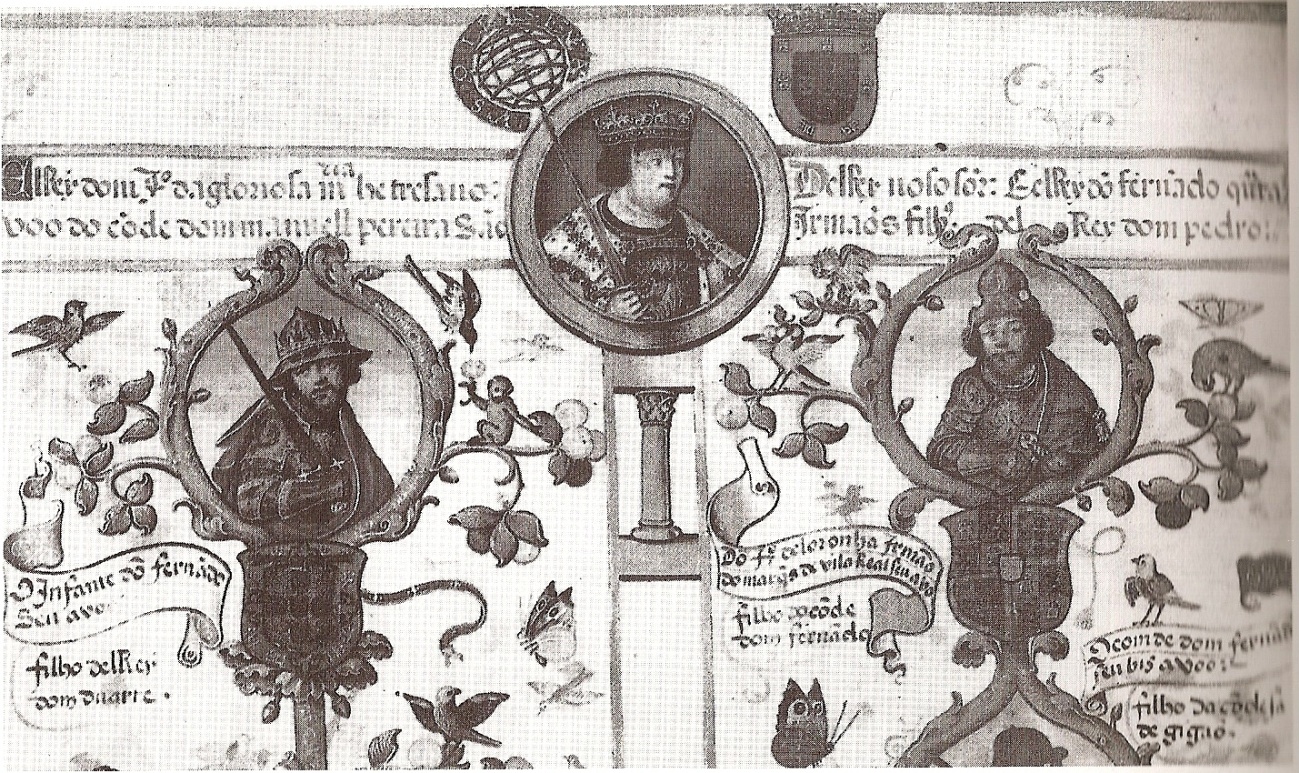 Elrey dom Jº da gloriosa mrĩa he tresavo:
voo do cõde dom manuell pereira
Delrey noso sõr: E elRey dõ fernãdo
Irmaõs filhos del Rey dom pedro:.
O Infante dõ fernãdo
Seu avo
filho delRey
dom duarte .
Dõ Fº deloronha jrmão
do marq̃s de vila Real seu avo
filho do cõde
dom fernãdo
O comde dom fernã
seu bis avoo:
filho da cõdesa
de gigaõ.